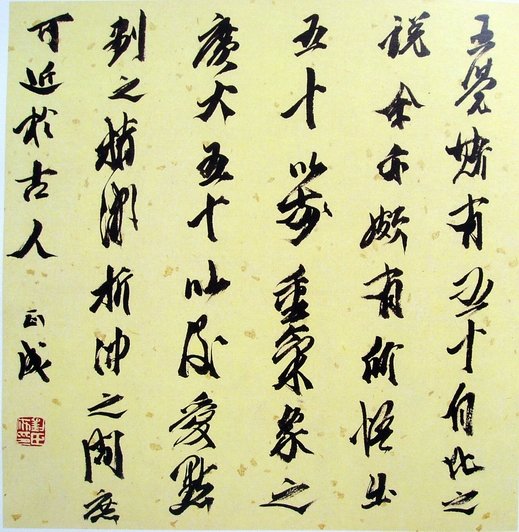 王覺斯有五十自化之
説余亦頗有所悟出
五十以前重氣象之
廣大五十以後愛點
劃之精微折冲之間庶
可近於古人 正成